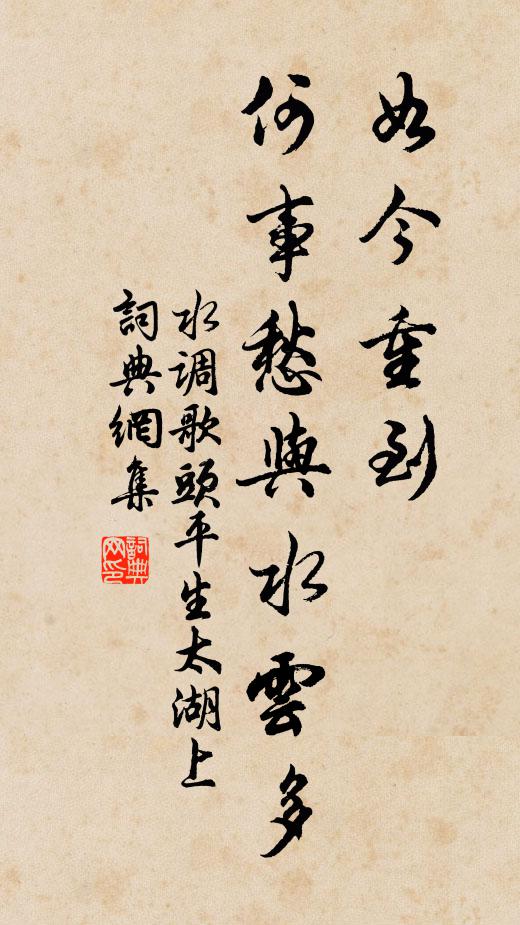 如今重到
何事愁與水雲多
水调歌頭平生太湖上
詞典網集
詞典網印